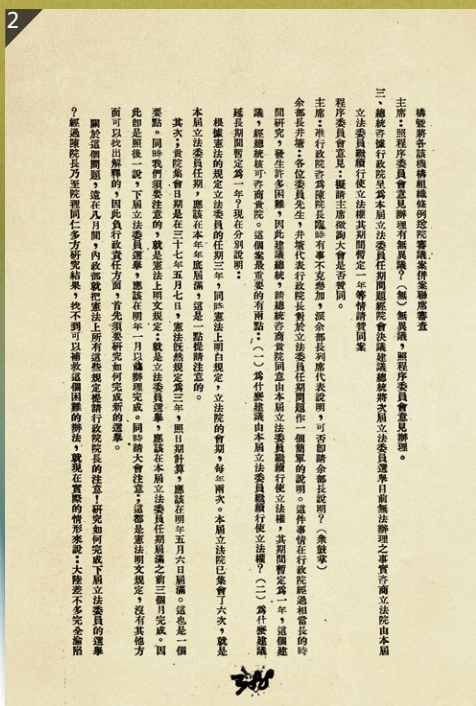 2
構暨將各該機構組織條例送院審議案併案聯席審查
主席：照程序委員會意見辦理有無異議？（無）無異議，照程序委員會意見辦理。
三、總統咨據行政院呈為本屆立法委員任期問題經院會決議建議總統將次屆立法委員選舉目前無法辦理之事實咨商立法院由本屆
立法委員繼續行使立法權其期間暫定一年等情請贊同案
程序委員會意見：擬請主席徵詢大會是否贊同。
主席：准行政院咨為陳院長臨時有事不克參加，派余部長列席代表說明，可否即請余部長說明？（衆鼓掌）
余部長井塘：各位委員先生，井塘代表行政院長對於立法委員任期問題作一個簡單的說明。這件事情在行政院經過相當長的時
間研究，發生許多困難，因此建議總統，請總統咨商貴院同意由本屆立法委員繼續行使立法權，其期間暫定為一年，這個建
議，經總統核可咨商貴院。這個案最重要的有兩點：（一）為什麼建議由本屆立法委員繼續行使立法權？（二）為什麼建議
延長期間暫定為一年？現在分別說明：
根據憲法的規定立法委員的任期三年，同時憲法上明白規定，立法院的會期，每年兩次。本屆立法院已集會了六次，就是
本屆立法委員任期，應該在本年年底屆滿，這是一點提請注意的。
其次；貴院集會日期是在三十七年五月七日，憲法既然規定為三年，照日期計算，應該在明年五月六日屆滿。這也是一個
要點。同時我們須要注意的，就是憲法上明文規定：就是立法委員選舉，應該在本屆立法委員任期屆滿之前三個月完成。因
此卽是照後一說，下屆立法委員選舉，應該在明年一月以義辦理完成。同時請大會注意；這都是憲法明文規定，沒有其他方
面可以找出解釋的，因此負行政責任方面，首先須要研究如何完成新的選舉。
關於這個問題，遠在八月間，內政部就把憲法上所有這些規定提請行政院院長的注意！研究如何完成下屆立法委員的選舉
？經過陳院長乃至院裡同仁多方研究結果，找不到可以補救這個困難的辦法，就現在實際的情形來說：大陸差不多完全淪陷
388